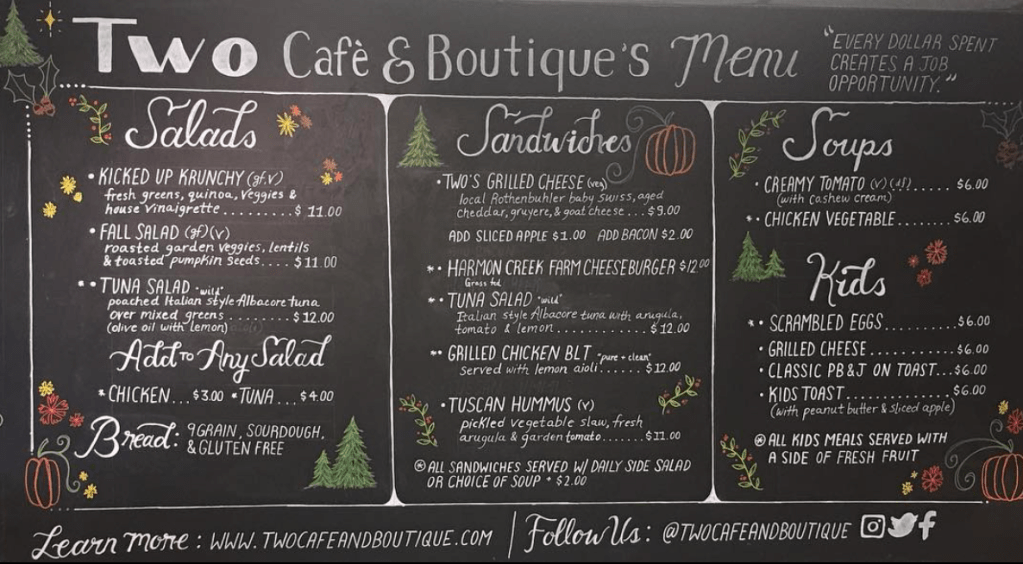 Two Cafè & Boutique's Menu
"EVERY DOLLAR SPENT
CREATES A JOB
OPPORTUNITY."
Salads
• KICKED UP KRUNCHY (gf.v)
fresh greens, quinoa, veggies &
house vinaigrette ......... $ 11.00
• FALL SALAD (gf)(v)
roasted garden veggies, lentils
& toasted pumpkin seeds.... $ 11.00
•• TUNA SALAD "wild"
poached Italian style Albacore tuna
over mixed greens ........ $ 12.00
(olive oil with lemon)
Add TO Any Salad
*CHICKEN...$3.00 *TUNA...$4.00
Bread: 9 GRAIN, SOURDOUGH,
& GLUTEN FREE
Sandwiches
• TWO'S GRILLED CHEESE (veg)
local Rothenbuhler baby swiss, aged
cheddar, gruyere, & goat cheese.... $9.00
ADD SLICED APPLE $1.00 ADD BACON $2.00
*• HARMON CREEK FARM CHEESEBURGER $12.00
Grass fed
*• TUNA SALAD "wild"
Italian style Albacore tuna with arugula,
tomato & lemon............. $ 12.00
*• GRILLED CHICKEN BLT "pure + clean"
served with lemon aioli...... $ 12.00
• TUSCAN HUMMUS (v)
pickled vegetable slaw, fresh
arugula & garden tomato......$11.00
⊛ ALL SANDWICHES SERVED W/ DAILY SIDE SALAD
OR CHOICE OF SOUP + $2.00
Soups
• CREAMY TOMATO (v) (df)..... $6.00
(with cashew cream)
*• CHICKEN VEGETABLE........ $6.00
Kids
*• SCRAMBLED EGGS...........$6.00
• GRILLED CHEESE............$6.00
• CLASSIC PB&J ON TOAST...$6.00
• KIDS TOAST................$6.00
(with peanut butter & sliced apple)
⊛ ALL KIDS MEALS SERVED WITH
A SIDE OF FRESH FRUIT
Learn more: WWW.TWOCAFEANDBOUTIQUE.COM | Follow Us: @TWOCAFEANDBOUTIQUE